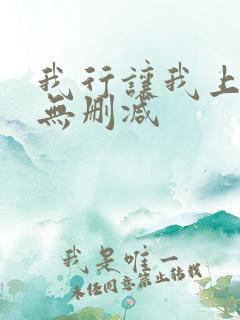 我行讓我上
無刪減
我是唯一
未經同意禁止轉載